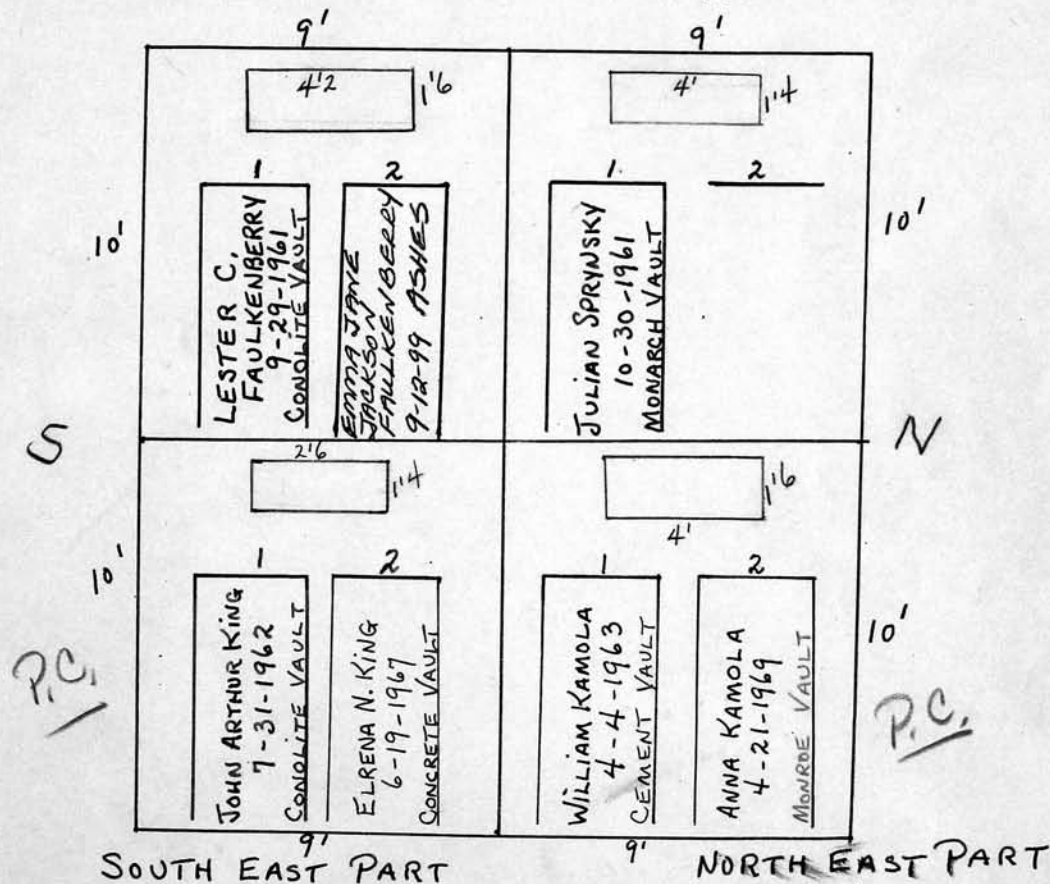 9'
9'
4'2
1'6
4'
1'4
1
2
1
2
10'
10'
LESTER C.
FAULKENBERRY
9-29-1961
CONOLITE VAULT
EMMA JANE
JACKSON
FAULKENBERRY
9-12-99 ASHES
JULIAN SPRYNSKY
10-30-1961
MONARCH VAULT
S
N
2'6
1'4
1'6
4'
1
2
1
2
10'
10'
JOHN ARTHUR KING
7-31-1962
CONOLITE VAULT
ELRENA N. KING
6-19-1967
CONCRETE VAULT
WILLIAM KAMOLA
4-4-1963
CEMENT VAULT
ANNA KAMOLA
4-21-1969
MONROE VAULT
P.C.
P.C.
9'
9'
SOUTH EAST PART
NORTH EAST PART